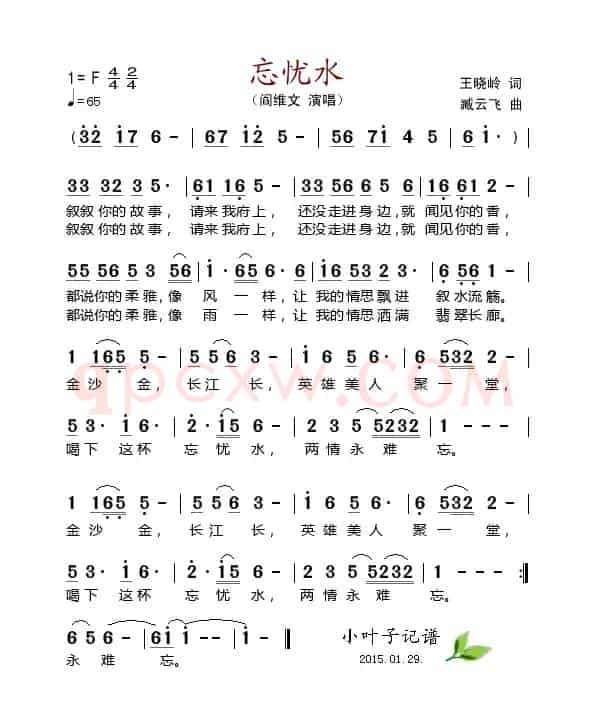 忘忧水
1=F 4/4 2/4
♩=65
（阎维文 演唱）
王晓岭 词
臧云飞 曲
( 32 17 6 - | 67 12 5 - | 56 71 4 5 | 6 1· )
33 32 3 5· | 61 16 5 - | 33 56 6 5 | 16 61 2 - |
叙叙你的故事， 请来我府上， 还没走进身边,就 闻见你的香，
叙叙你的故事， 请来我府上， 还没走进身边,就 闻见你的香，
55 56 5 3 56 | 1· 65 6· 1 | 15 56 5 3 | 6 56 1 - |
都说你的柔雅,像 风 一 样， 让 我的情思飘进 叙水流觞。
都说你的柔雅,像 雨 一 样， 让 我的情思洒满 翡翠长廊。
1 165 5 - | 5 56 3 - | 1 6 5 6· | 6 532 2 - |
qpcxw.COM
金 沙 金， 长 江 长， 英 雄 美 人 聚 一 堂，
5 3· 1 6· | 2· 1 5 6 - | 2 3 5 5232 | 1 - - - |
喝下 这杯 忘 忧 水， 两 情 永 难 忘。
1 165 5 - | 5 56 3 - | 1 6 5 6· | 6 532 2 - |
金 沙 金， 长 江 长， 英 雄 美 人 聚 一 堂，
5 3· 1 6· | 2· 15 6 - | 2 3 5 5232 | 1 - - - :||
喝下 这杯 忘 忧 水， 两 情 永 难 忘。
6 5 6 - | 61 1 - - | 1 - - - ||
永 难 忘。
小叶子记谱
2015.01.29.